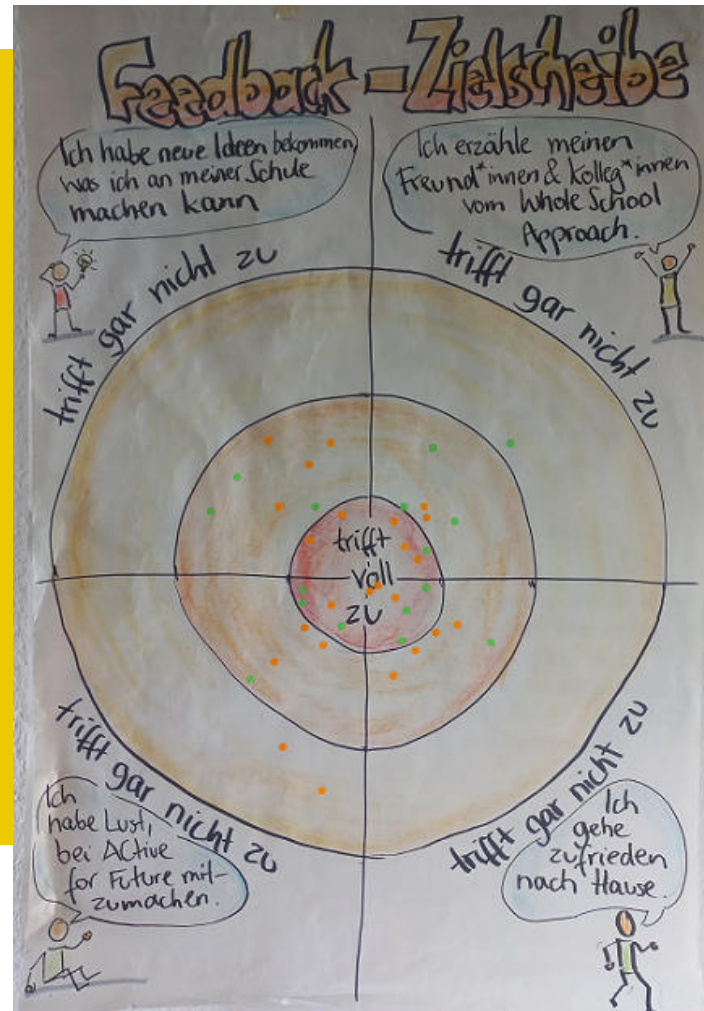 Feedback-Zielscheibe
Ich habe neue Ideen bekommen,
was ich an meiner Schule
machen kann
Ich erzähle meinen
Freund*innen & Kolleg*innen
vom Whole School
Approach.
trifft gar nicht zu
trifft gar nicht zu
trifft
voll
zu
trifft gar nicht zu
trifft gar nicht zu
Ich
habe Lust,
bei Active
for Future mit-
zumachen.
Ich
gehe
zufrieden
nach Hause.